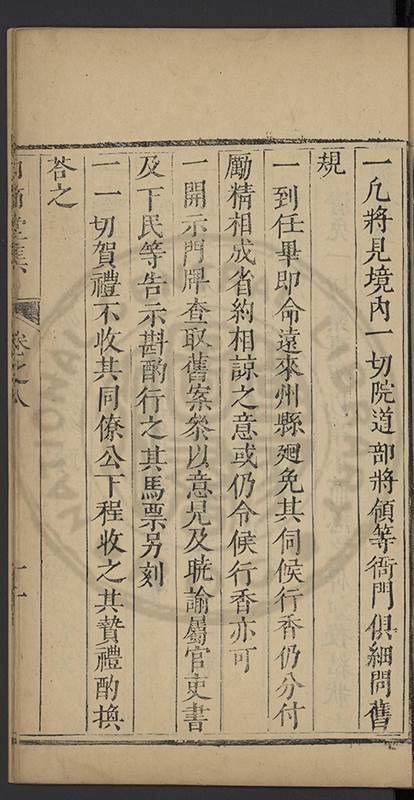 一凡將見境內一切院道部將領等衙門俱細問舊
規
一到任畢即命遠來州縣廻免其伺候行香仍分付
勵精相成省約相諒之意或仍令候行香亦可
一開示門牌查取舊案叅以意見及曉諭屬官吏書
及下民等告示斟酌行之其馬票另刻
一一切賀禮不收其同僚公下程收之其贄禮酌換
答之
堂集
卷之八